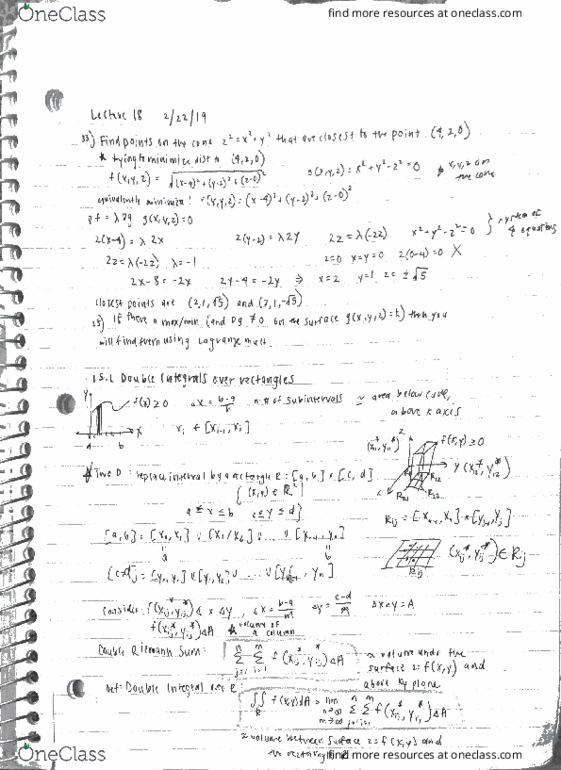 OneClass
find more resources at oneclass.com
Lecture 18 2/22/19
33) Find points on the cone z² = x² + y² that are closest to the point (4,2,0)
* trying to minimize dist to (4,2,0)
f(x,y,z) = √(x-4)²+(y-2)²+(z-0)² g(x,y,z) = x²+y²-z² = 0 x,y,z on the cone
equivalently minimize! f(x,y,z) = (x-4)²+(y-2)²+(z-0)²
∇f = λ∇g g(x,y,z)=0
2(x-4) = λ2x 2(y-2) = λ2y 2z = λ(-2z) x²+y²-z²=0 } system of 4 equations
2z = λ(-2z) λ = -1 z=0 x=y=0 2(0-4)=0 X
2x-8 = -2x 2y-4 = -2y ⇒ x=2 y=1 z=±√5
closest points are (2,1,√5) and (2,1,-√5)
If there a max/min (and ∇g ≠ 0 on the surface g(x,y,z)=k) then you
will find them using Lagrange mult.
15.1 Double Integrals over rectangles
y f(x) ≥ 0 Δx = b-a/n n = # of subintervals ≈ area below curve,
above x axis
a b x
xᵢ* ∈ [xᵢ₋₁, xᵢ]
z f(x,y) ≥ 0
y
x
: replace interval by a rectangle R = [a,b] × [c,d]
{(x,y) ∈ R²|
a ≤ x ≤ b c ≤ y ≤ d}
[a,b] = [x₀,x₁] ∪ [x₁,x₂] ∪ ... ∪
a b
[c,d] = [y₀,y₁] ∪ [y₁,y₂] ∪ ... ∪
(xᵢⱼ*, yᵢⱼ*) ∈ Rᵢⱼ
Rᵢⱼ
Consider: f(xᵢⱼ*, yᵢⱼ*) Δx Δy, Δx = b-a/n ΔxΔy = A
f(xᵢⱼ*, yᵢⱼ*)ΔA * volume of a column
Double Riemann Sum: Σ Σ f(xᵢⱼ*, yᵢⱼ*) ΔA ≈ volume under the
surface z=f(x,y) and
above xy plane
Def: Double Integral over R:
∬ f(x,y)dA = lim Σ Σ f(xᵢⱼ*, yᵢⱼ*)ΔA
R
= volume between surface z=f(x,y) and
OneClass
find more resources at oneclass.com